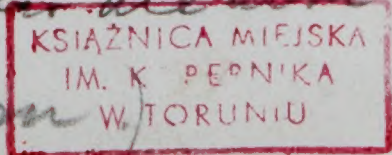 KSIĄŻNICA MIEJSKA
IM. K PERNIKA
W TORUNIU